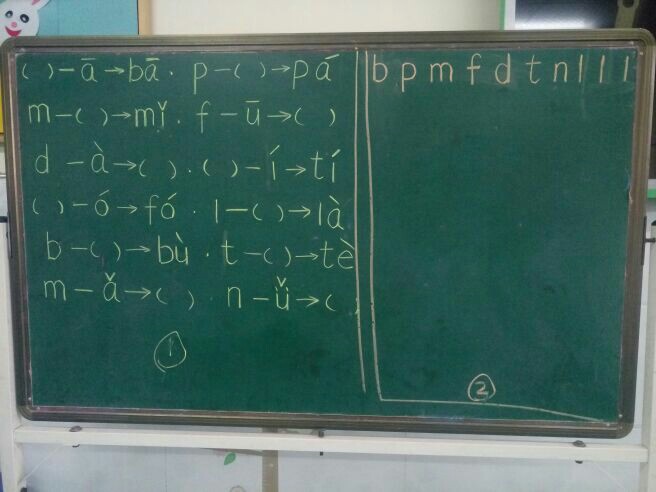 ( )-ā→bā. p-( )→pá
m-( )→mǐ. f-ū→( )
d-à→( ). ( )-í→tí
( )-ó→fó. l-( )→là
b-( )→bù. t-( )→tè
m-ǎ→( ). n-ǚ→( )
①
b p m f d t n l l l
②